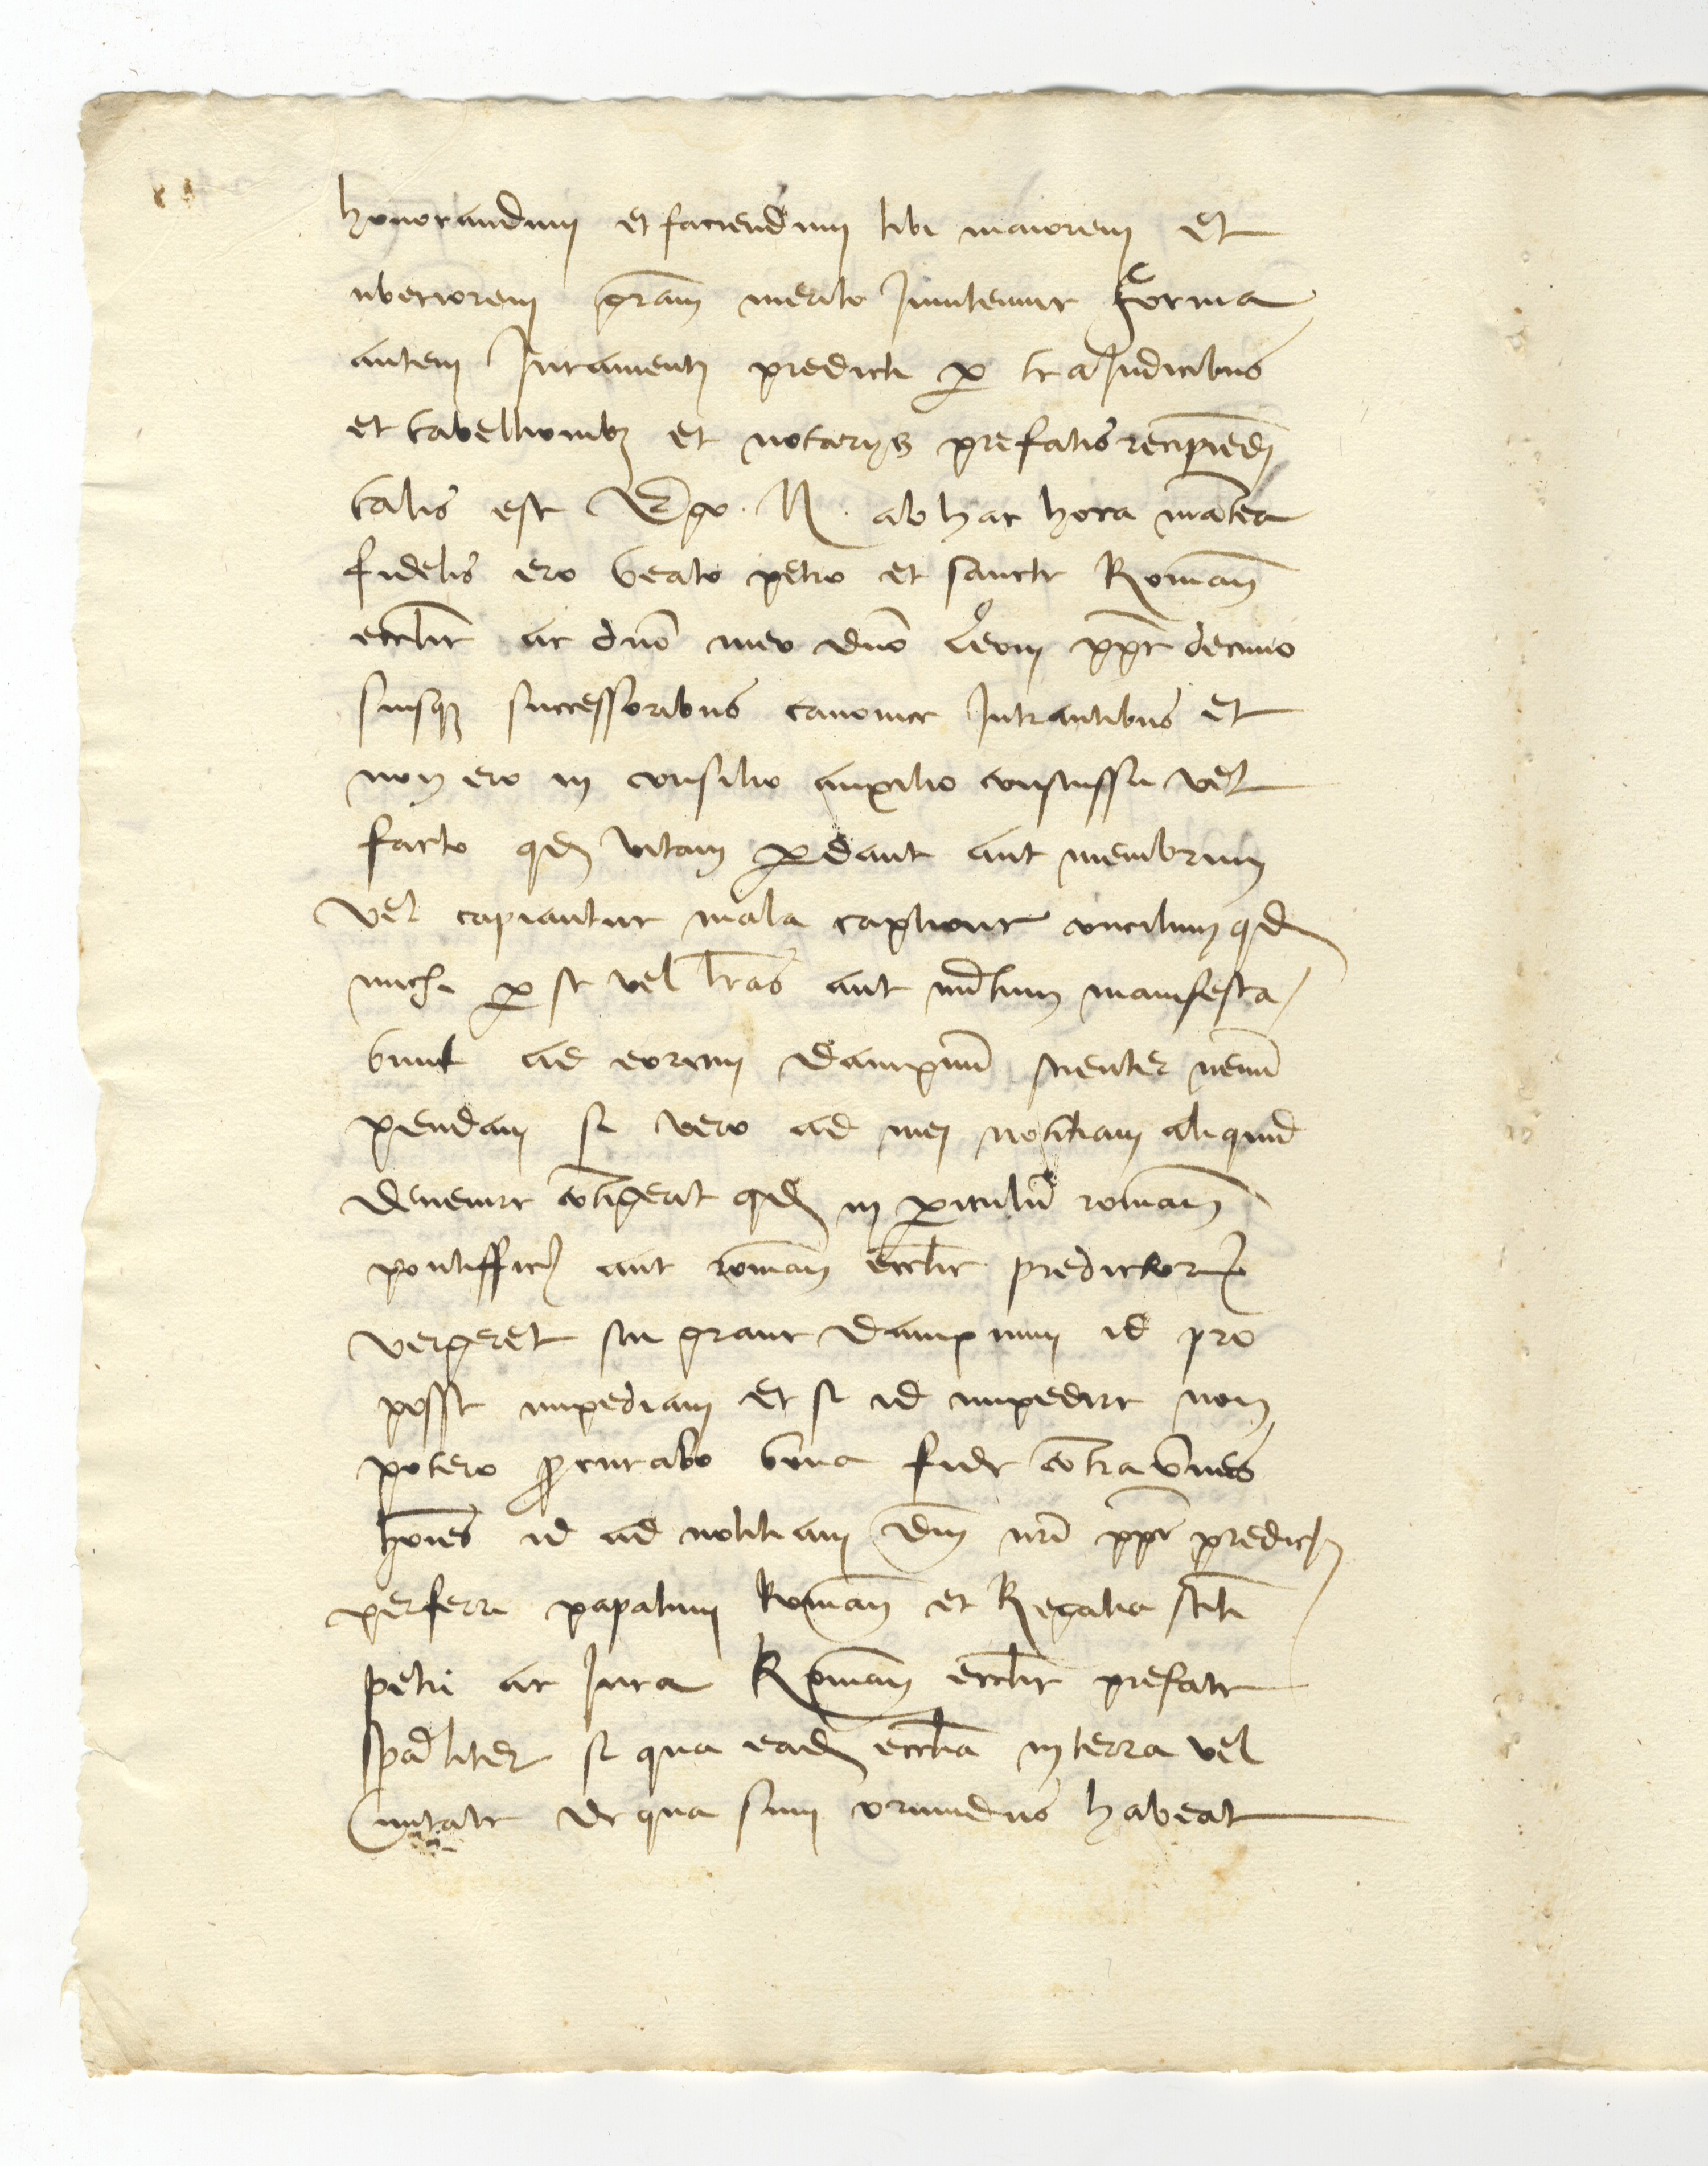 honorandum et faciendum tibi maiorem et
uberiorem gram merito Inuitemur Forma
autem Iuramenti predicti p te a Iudicibus
et tabellionibz et notarijs prefatis recipiendi
talis est Ego . N . ab hac hora inantea
fidelis ero beato petro et sancte Roman
ecclie ac dno meo dno Leoni ppe decimo
suisqz successoribus canonice Intrantibus et
non ero in consilio auxilio consensu vel
facto qd vitam pdant aut membrum
vel capiantur mala captione consilium qd
michi p se vel lras aut nuntium manifesta
bunt ad eorum dampnum scienter nemini
pendam si vero ad mei notitiam aliquid
deuenire contigerit qd in piculum roman
pontifficis aut roman ecclie predictorum
vergeret seu graue dampnum id pro
posse impediam et si id impedire non
potero procurabo bona fide contra omnes
hoies id ad notitiam dni nri ppe predicti
perferri papatum Roman et Regalia scti
petri ac Iura Roman ecclie prefate
spaliter si qua eadem ecclia in terra vel
Ciuitate de qua sum oriundus habeat